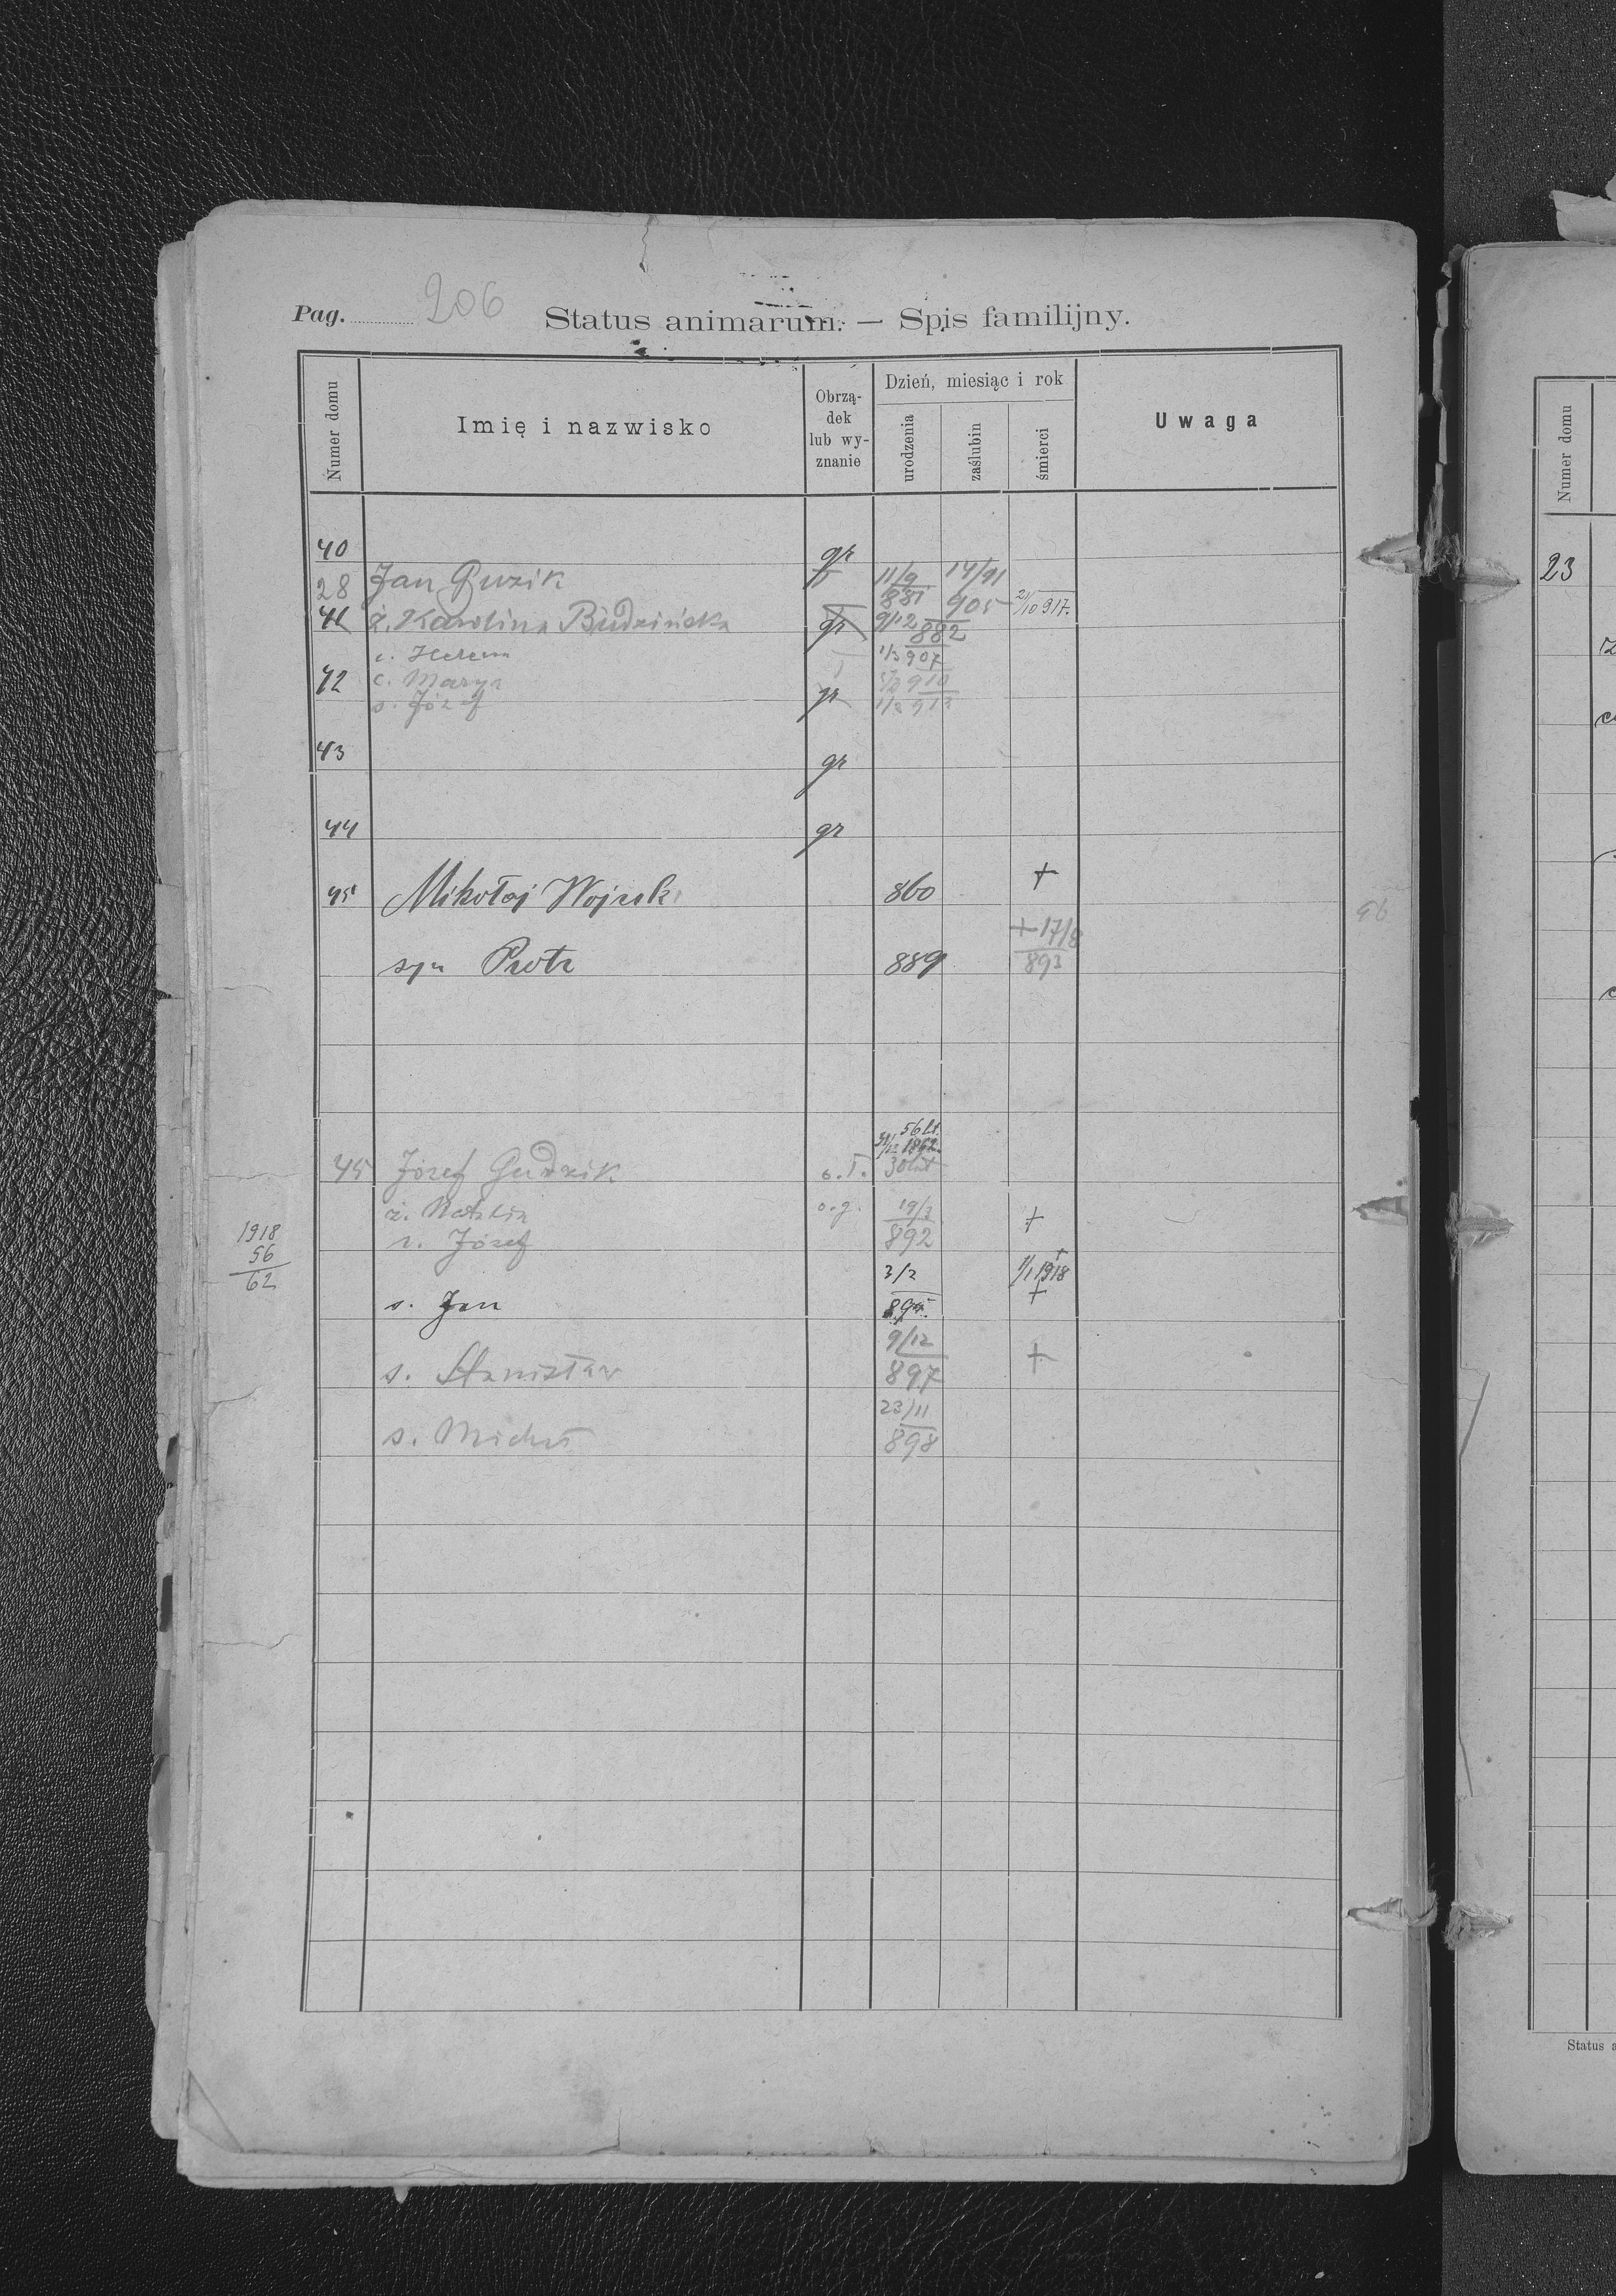 Pag. 206 Status animarum. — Spis familijny.
Numer domu
Imię i nazwisko
Obrzą-
dek
lub wy-
znanie
Dzień, miesiąc i rok
urodzenia
zaślubin
śmierci
Uwaga
40 gr
28 Jan Guzik 11/9 881 14/11 905
41 ż. Karolina Budzińska gr 9/12 882 21/10 917.
c. Helena 1/3 907
42 c. Marya gr 910
s. Józef
43 gr
44 gr
45 Mikołaj 860 +
syn Piotr 889 + 17/8 893
96
56 lt.
1862
45 Józef Gudzik o. ł. 30 lat
ż. Natalia o. g. 19/3 +
s. Józef 892
1918
56
62
3/2 1/1 1918
s. Jan 895. +
9/12
s. Stanisław 897 +
23/11
s. Michał 898
Numer domu
23
Status a